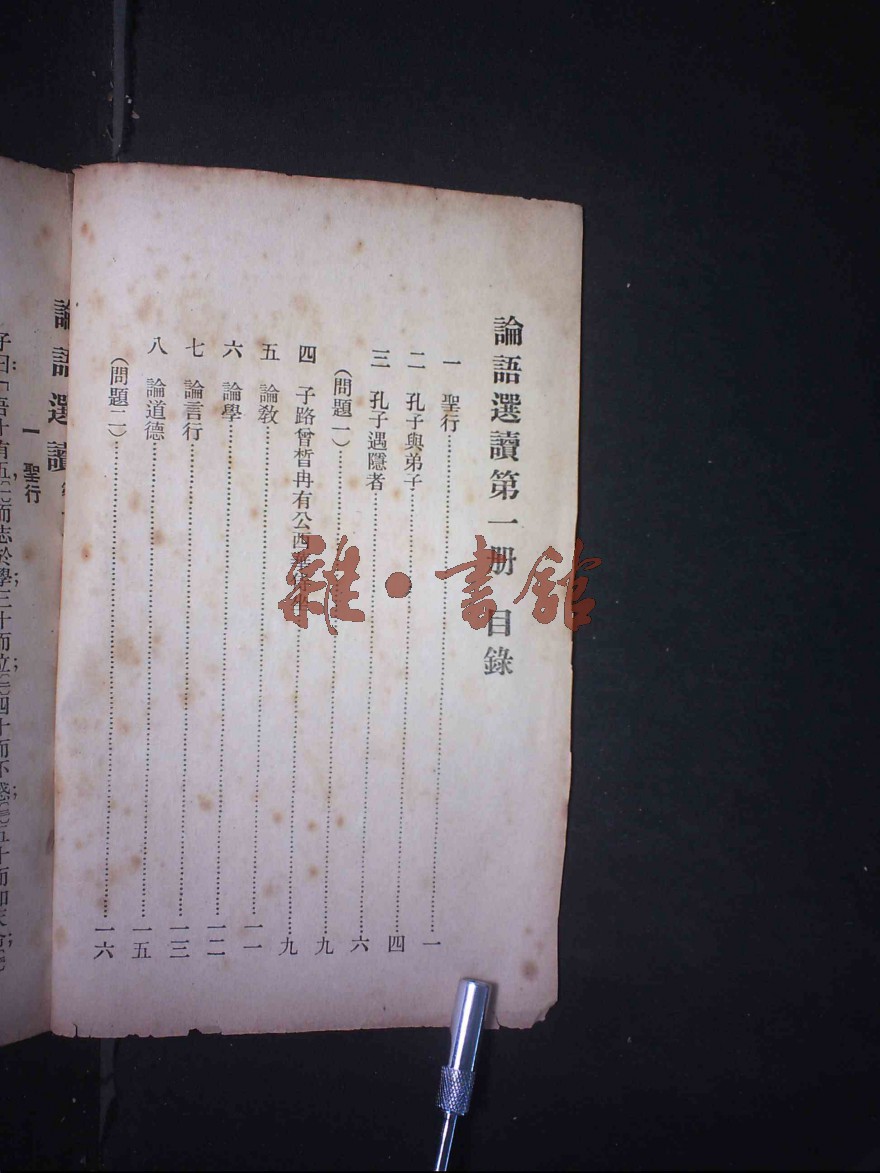 論語選讀第一册 目錄
一 聖行……一
二 孔子與弟子……四
三 孔子遇隱者……六
(問題一)……九
四 子路曾晳冉有公西華侍坐……九
五 論教……一一
六 論學……一二
七 論言行……一三
八 論道德……一五
(問題二)……一六
論語選讀
一 聖行
子曰:「吾十有五(一)而志於學;三十而立(二);四十而不惑(三);五十而知天命;
雜·書館